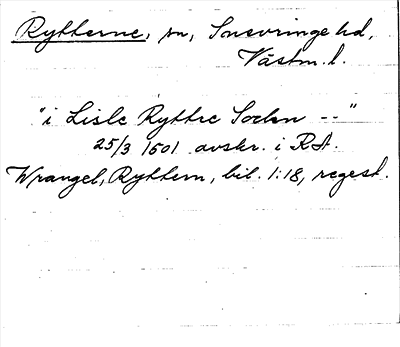 Rytterne, sn, Snevringe hd,
Västm. l.
"i Lisle Ryttre Sochn --"
25/3 1501 avskr. i RA.
Wrangel, Ryttern, bil. 1:18, regest.